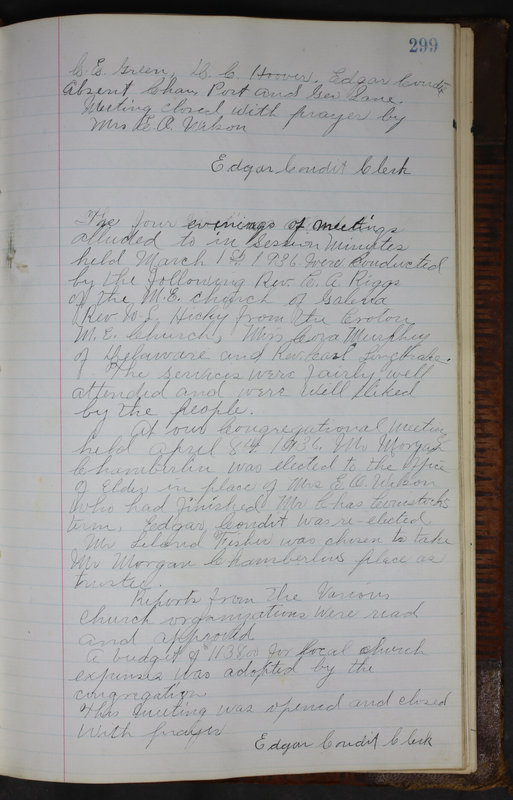 299
C. E. Green, W. C. Hoover, Edgar Condit
Absent Chas. Port and Geo Lane.
Meeting closed with prayer by
Mrs E. O. Watson
Edgar Condit Clerk
The four evenings of meetings
alluded to in Session Minutes
held March 1st 1936 were conducted
by the following Rev. C. A. Riggs
of the M.E. church of Galena
Rev W. L. Hicky from the Croton
M.E. Church, Miss Cora Murphey
of Delaware and Rev. Carl
The services were fairly well
attended and were well liked
by the people.
At our Congregational Meeting
held April 8th 1936, Mr Morgan
Chamberlin was elected to the office
of Elder in place of Mrs E. O. Watson
who had finished Mr Chas Comstock's
term. Edgar Condit was re-elected.
Mr. Leland Fisher was chosen to take
Mr Morgan Chamberlins place as
trustee.
Reports from the Various
church organizations were read
and approved
A budget of $1138.00 for local church
expenses was adopted by the
congregation
This meeting was opened and closed
with prayer
Edgar Condit Clerk